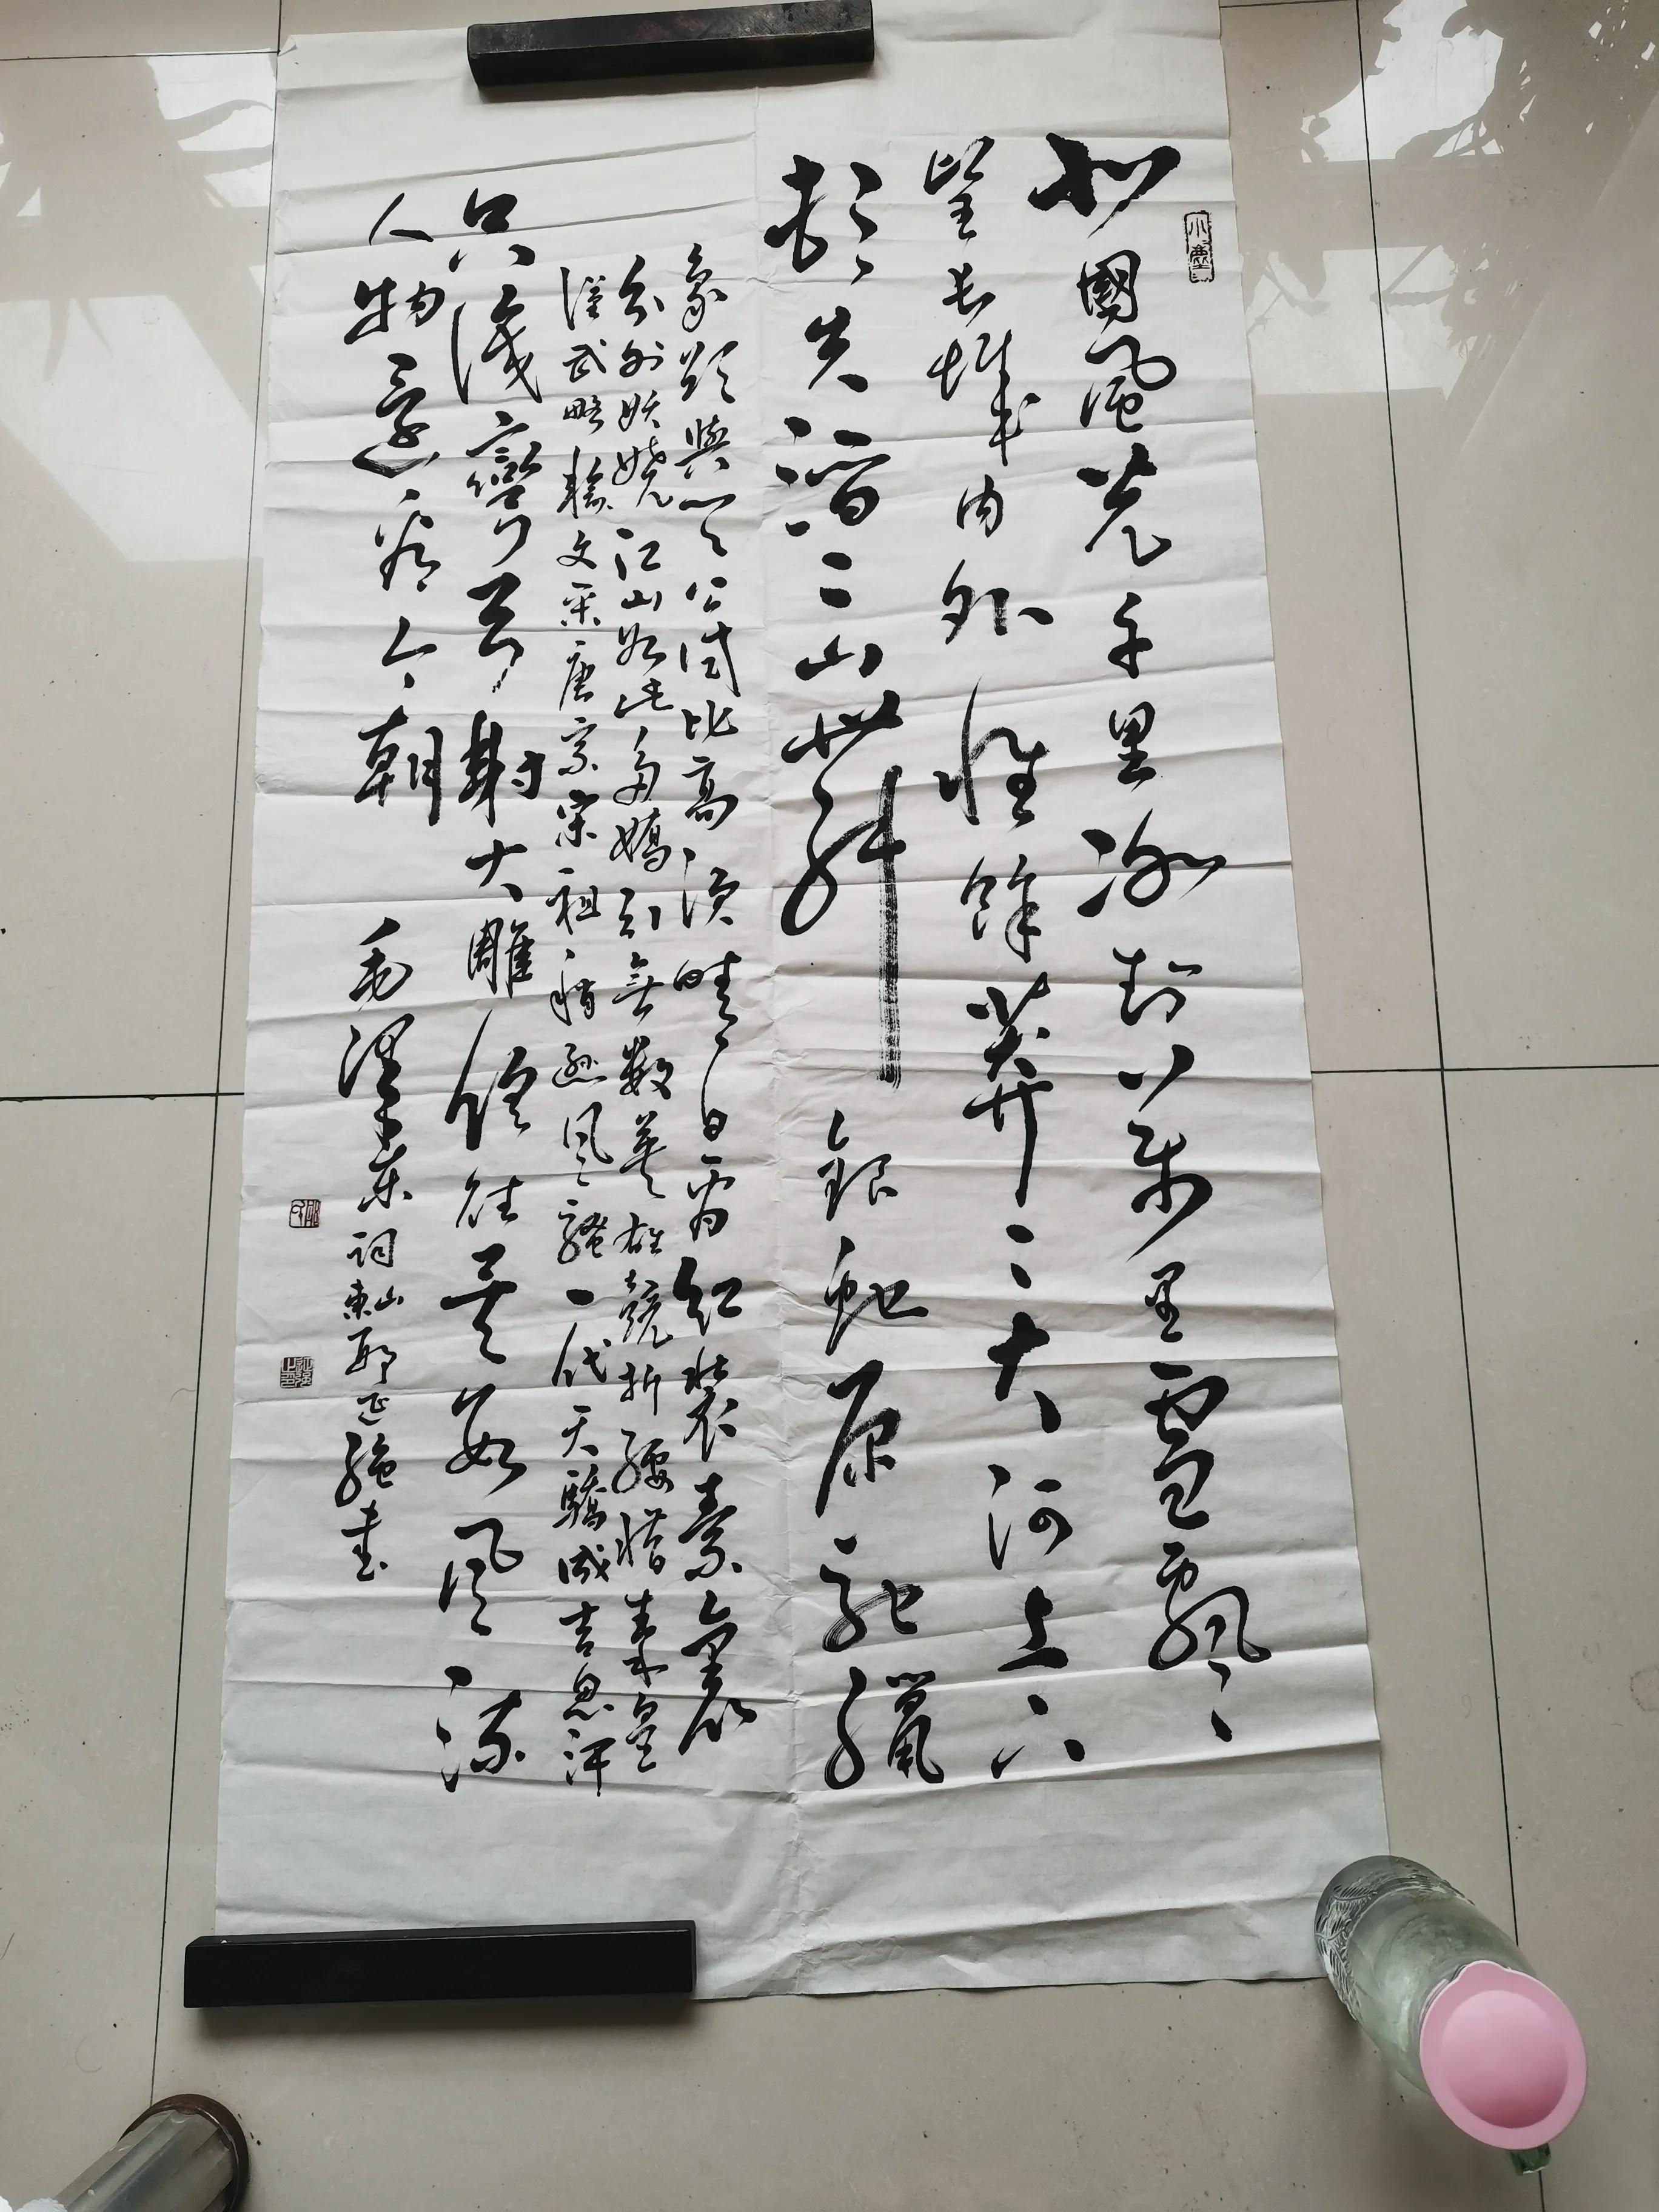 北國風光千里冰封萬里雪飄
望長城內外惟餘莽々大河上下
頓失滔々山舞銀蛇原馳蠟
象欲與天公試比高須晴日看紅裝素裹
分外妖嬈江山如此多嬌引無数英雄競折腰惜秦皇
漢武略輸文采唐宗宋祖稍遜風騷一代天驕成吉思汗
只識彎弓射大雕俱往矣數風流
人物還看今朝
毛澤東詞山東書